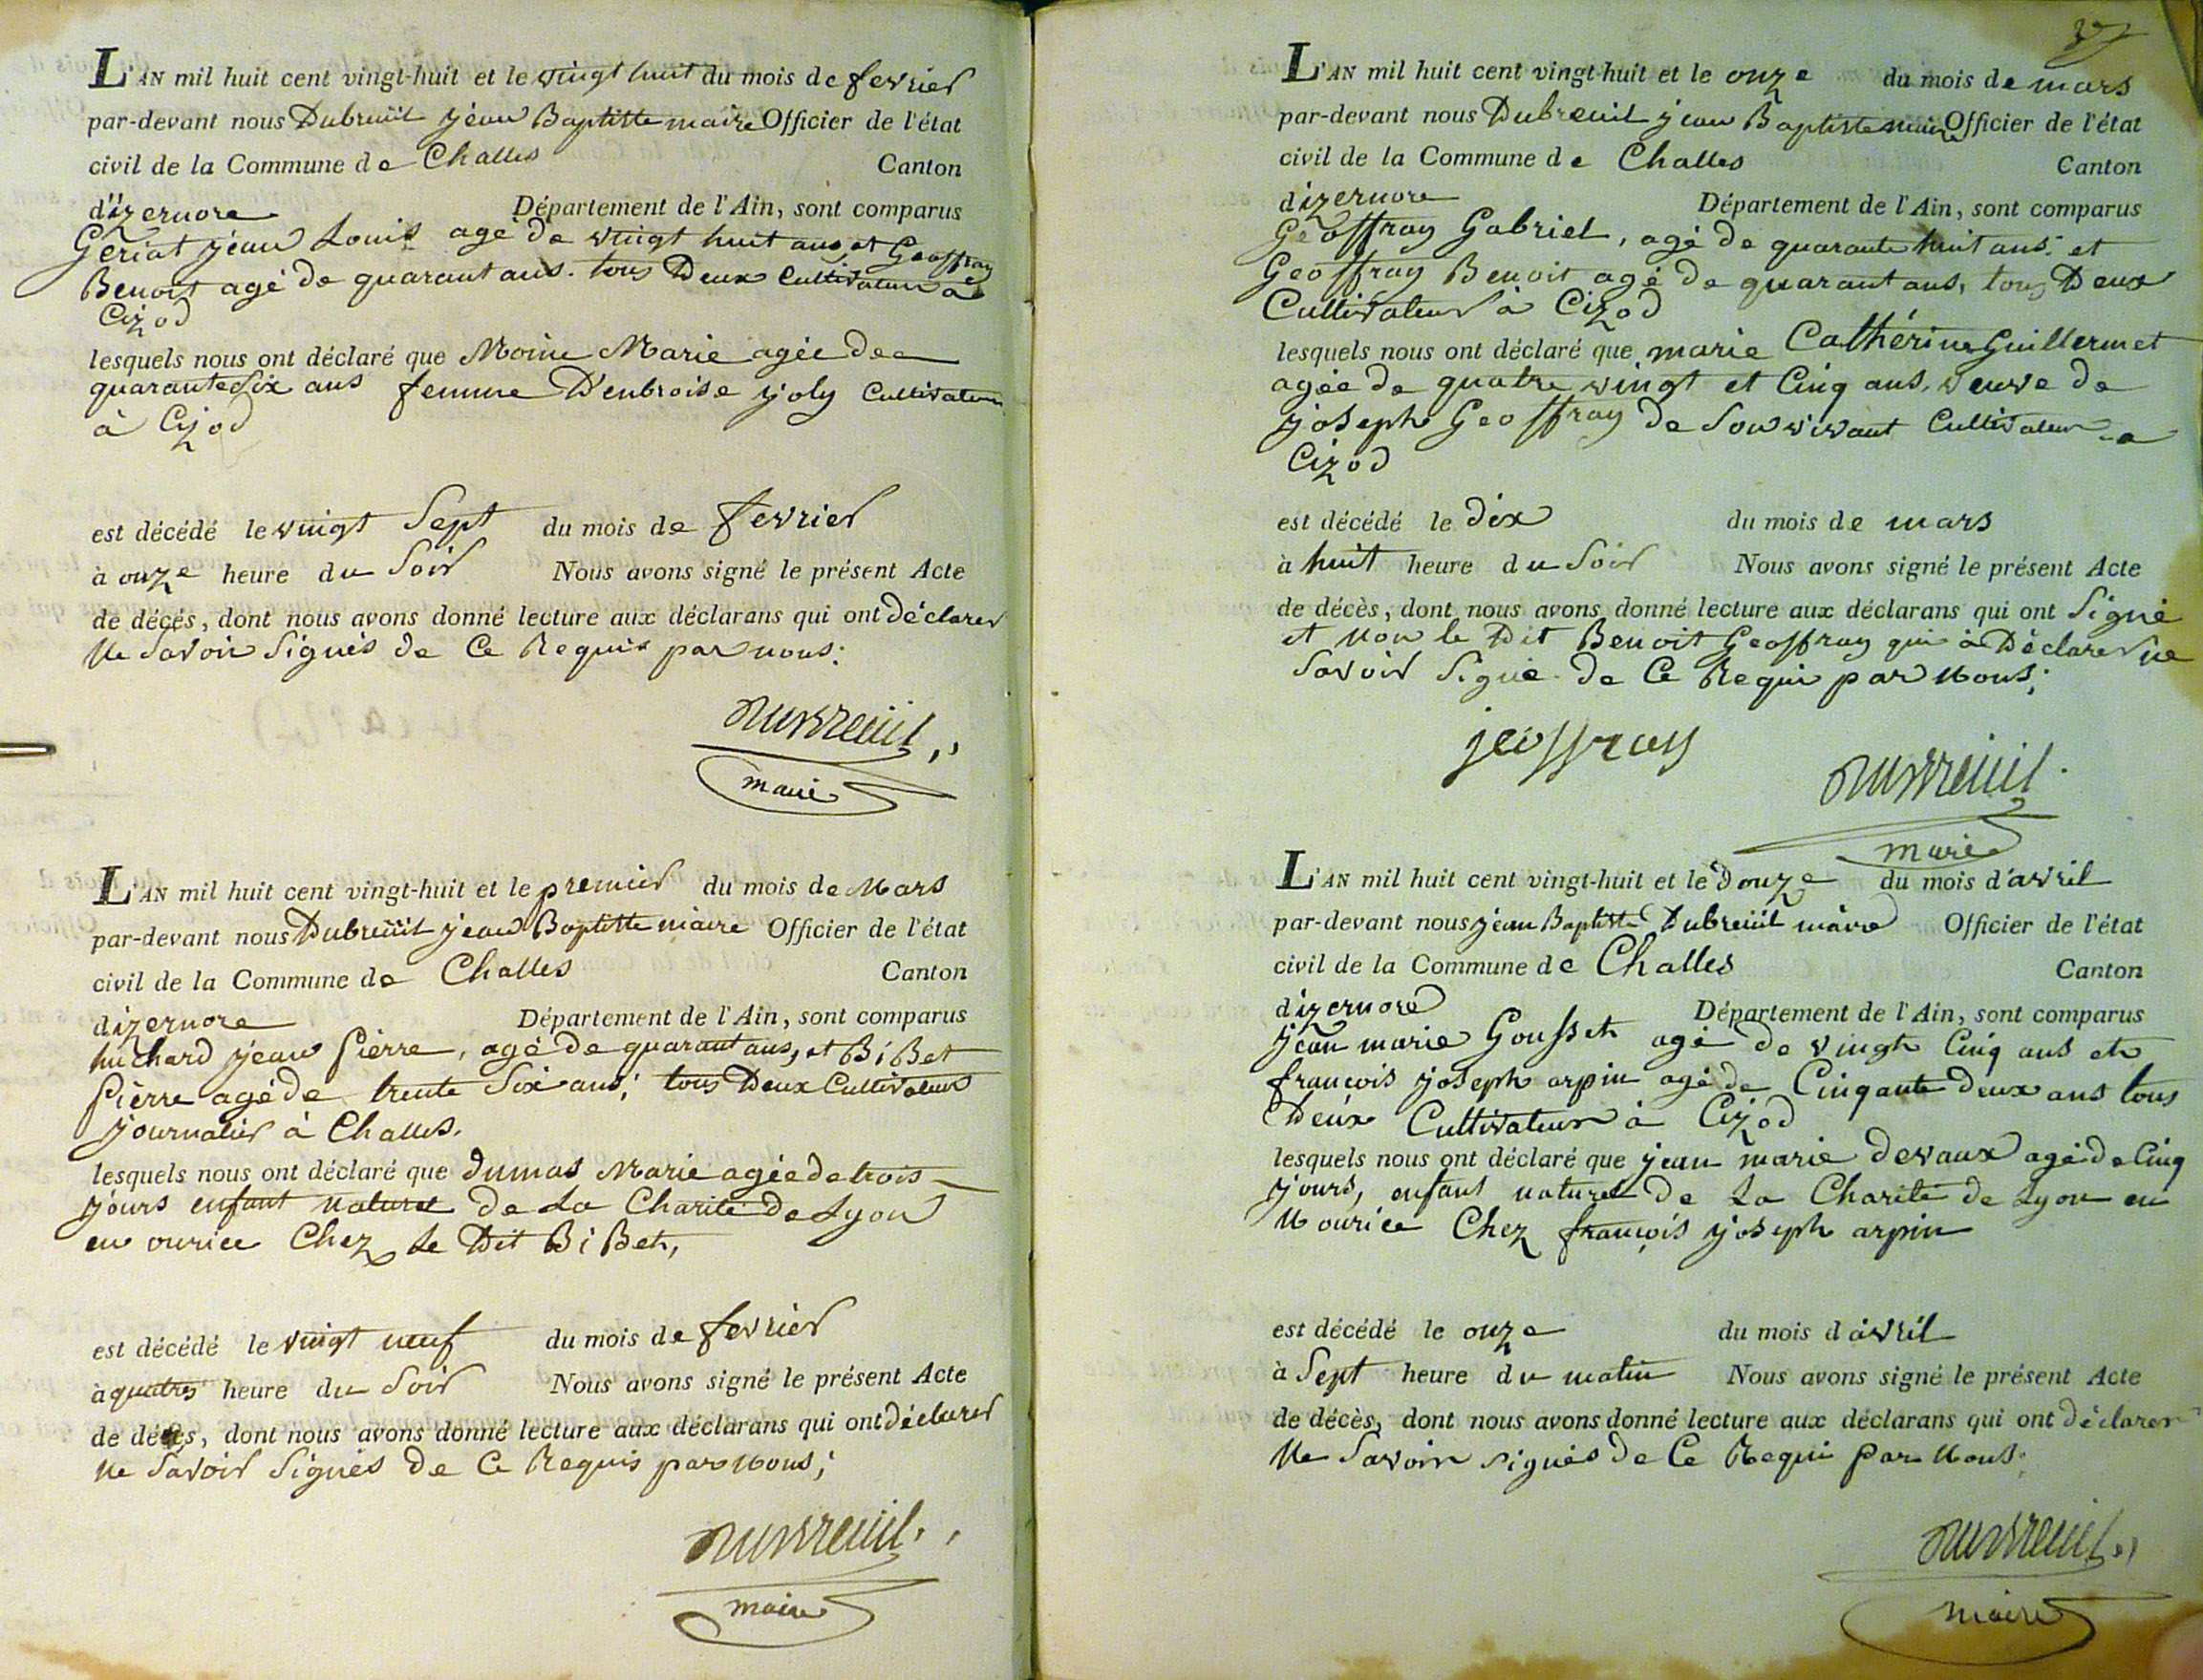 L'AN mil huit cent vingt-huit et le vingt huit du mois de fevrier
par-devant nous Dubreuil jean Baptiste maire Officier de l'état
civil de la Commune de Challes Canton
d'izernore Département de l'Ain, sont comparus
Geriat jean Louis agé de vingt huit ans, et Geoffray
Benoit agé de quarant ans. tous Deux Cultivateur à
Cizod
lesquels nous ont déclaré que Moine Marie agée de
quarante six ans femme D'enbroise joly Cultivateur
à Cizod
est décédé le vingt Sept du mois de fevrier
à onze heure du Soir Nous avons signé le présent Acte
de décès, dont nous avons donné lecture aux déclarans qui ont Déclarer
Ne Savoir Signés de Ce Requis par nous.
Dubreuil
maire
L'AN mil huit cent vingt-huit et le premier du mois de Mars
par-devant nous Dubreuil jean Baptiste maire Officier de l'état
civil de la Commune de Challes Canton
dizernore Département de l'Ain, sont comparus
huchard jean Pierre, agé de quarant ans, et BiBet
Pierre agé de trente Six ans; tous Deux Cultivateur
journalier à Challes.
lesquels nous ont déclaré que dumas Marie agée de trois
jours enfant naturel de La Charité de Lyon
en ourice Chez Le Dit BiBet,
est décédé le vingt neuf du mois de fevrier
à quatres heure du Soir Nous avons signé le présent Acte
de décès, dont nous avons donné lecture aux déclarans qui ont déclarer
Ne Savoir Signés de Ce Requis par Nous;
Dubreuil
maire
37
L'AN mil huit cent vingt-huit et le onze du mois de mars
par-devant nous Dubreuil jean Baptiste maire Officier de l'état
civil de la Commune de Challes Canton
dizernore Département de l'Ain, sont comparus
Geoffray Gabriel, agé de quarante huit ans. et
Geoffray Benoit agé de quarant ans, tous Deux
Cultivateur à Cizod
lesquels nous ont déclaré que marie Cathérine Guillermet
agée de quatre vingt et Cinq ans, veuve de
joseph Geoffray de Son vivant Cultivateur a
Cizod
est décédé le dix du mois de mars
à huit heure du Soir Nous avons signé le présent Acte
de décès, dont nous avons donné lecture aux déclarans qui ont Signé
et Non le Dit Benoit Geoffray qui à Déclarer ne
Savoir Signé de Ce Requi par Nous;
jeoffray
Dubreuil
maire
L'AN mil huit cent vingt-huit et le douze du mois d'avril
par-devant nous jean Baptiste Dubreuil maire Officier de l'état
civil de la Commune de Challes Canton
dizernore Département de l'Ain, sont comparus
jean marie Gousset agé de vingt Cinq ans et
francois joseph arpin agé de Cinqante deux ans tous
Deux Cultivateur à Cizod
lesquels nous ont déclaré que jean marie devaux agé de Cinq
jours, enfant naturel de La Charité de Lyon en
Nourice Chez françois joseph arpin
est décédé le onze du mois d'avril
à Sept heure du matin Nous avons signé le présent Acte
de décès, dont nous avons donné lecture aux déclarans qui ont déclarer
Ne Savoir signés de Ce Requi par Nous.
Dubreuil
maire